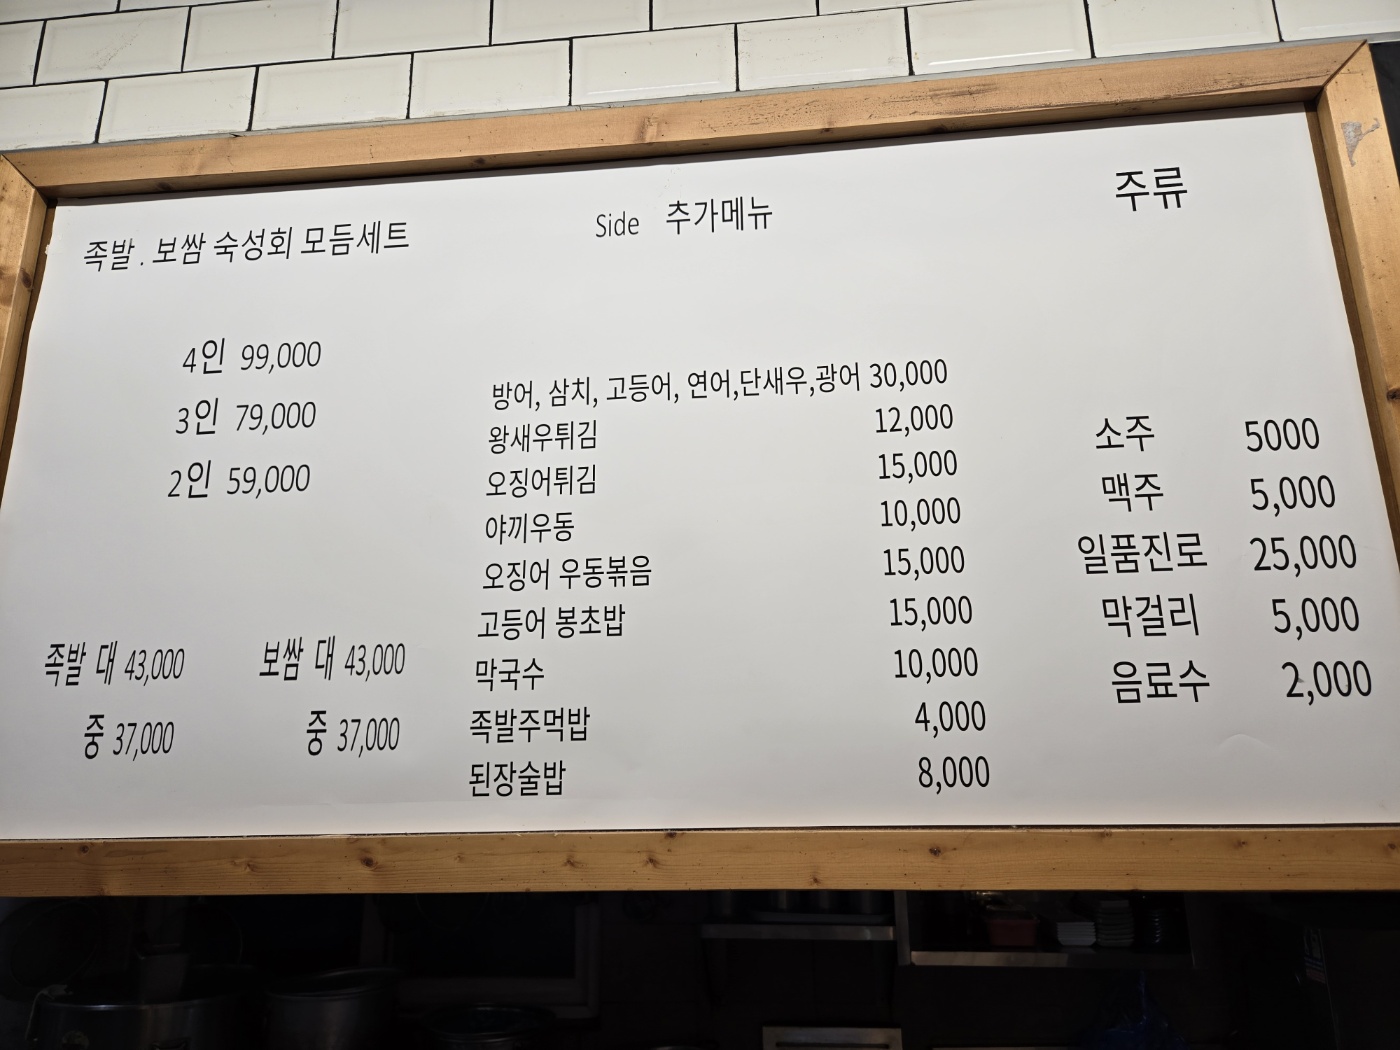 족발 . 보쌈 숙성회 모듬세트
4인 99,000
3인 79,000
2인 59,000
족발 대 43,000 보쌈 대 43,000
중 37,000 중 37,000
Side 추가메뉴
방어, 삼치, 고등어, 연어,단새우,광어 30,000
왕새우튀김 12,000
오징어튀김 15,000
야끼우동 10,000
오징어 우동볶음 15,000
고등어 봉초밥 15,000
막국수 10,000
족발주먹밥 4,000
된장술밥 8,000
주류
소주 5000
맥주 5,000
일품진로 25,000
막걸리 5,000
음료수 2,000